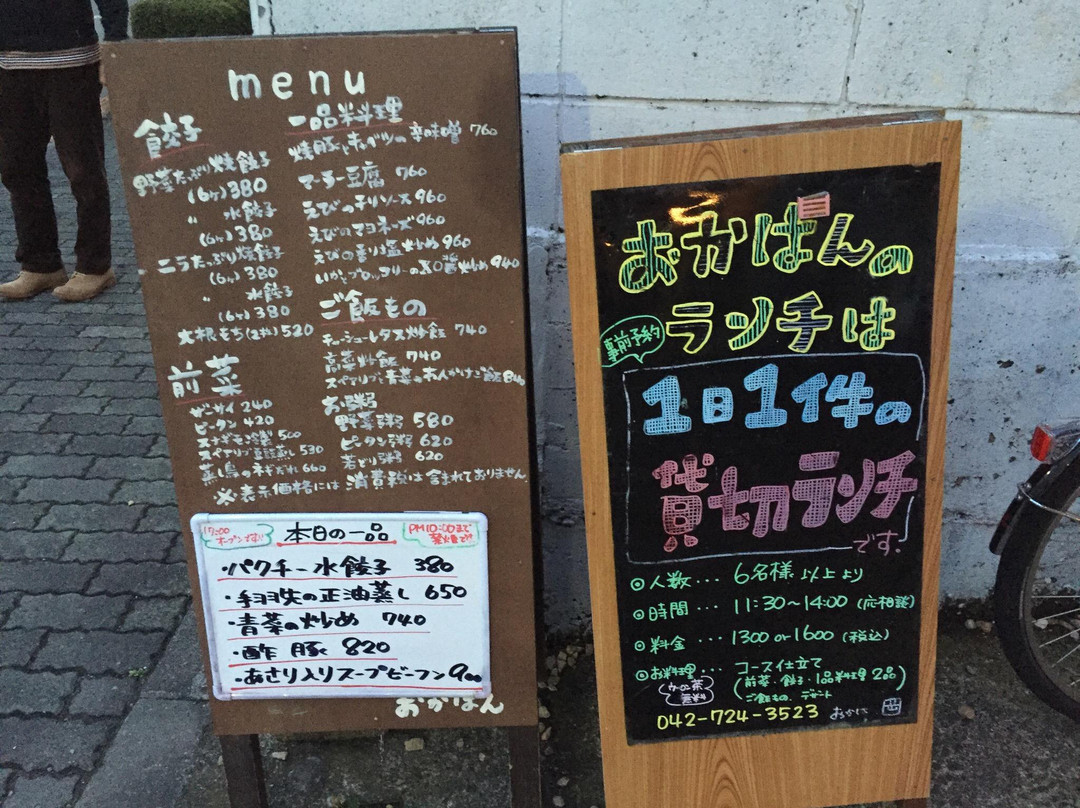 menu
餃子
野菜たっぷり焼餃子
(6ヶ)380
〃 水餃子
(6ヶ)380
ニラたっぷり焼餃子
(6ヶ)380
〃 水餃子
(6ヶ)380
大根もち(2枚)520
前菜
ザーサイ 240
ピータン 420
スナギモ冷製 500
スペアリブ豆豉蒸し 530
蒸し鳥のネギだれ 660
一品料理
焼豚とキャベツの辛味噌 760
マーラー豆腐 760
えびのチリソース 960
えびのマヨネーズ 960
えびの香り塩炒め 960
いかとブロッコリーのXO醤炒め 940
ご飯もの
チャーシューレタス炒飯 740
高菜炒飯 740
スペアリブと青菜のあんかけご飯 840
お粥
野菜粥 580
ピータン粥 620
若どり粥 620
※表示価格には消費税は含まれておりません
17:00
オープンです!
本日の一品
PM10:00まで
営業中です!
・パクチー水餃子 380
の正油蒸し 650
・青菜の炒め 740
・酢豚 820
・あさり入りスープビーフン 900
おかぱん
おかぱんの
ランチは
事前予約
1日1件の
貸切ランチ
です.
◎人数・・・ 6名様以上より
◎時間・・・ 11:30〜14:00 (応相談)
◎料金・・・ 1300 or 1600 (税込)
◎お料理・・・ コース仕立て
(前菜・餃子・1品料理2品)
ご飯もの、デザート
ウーロン茶
無料
042-724-3523